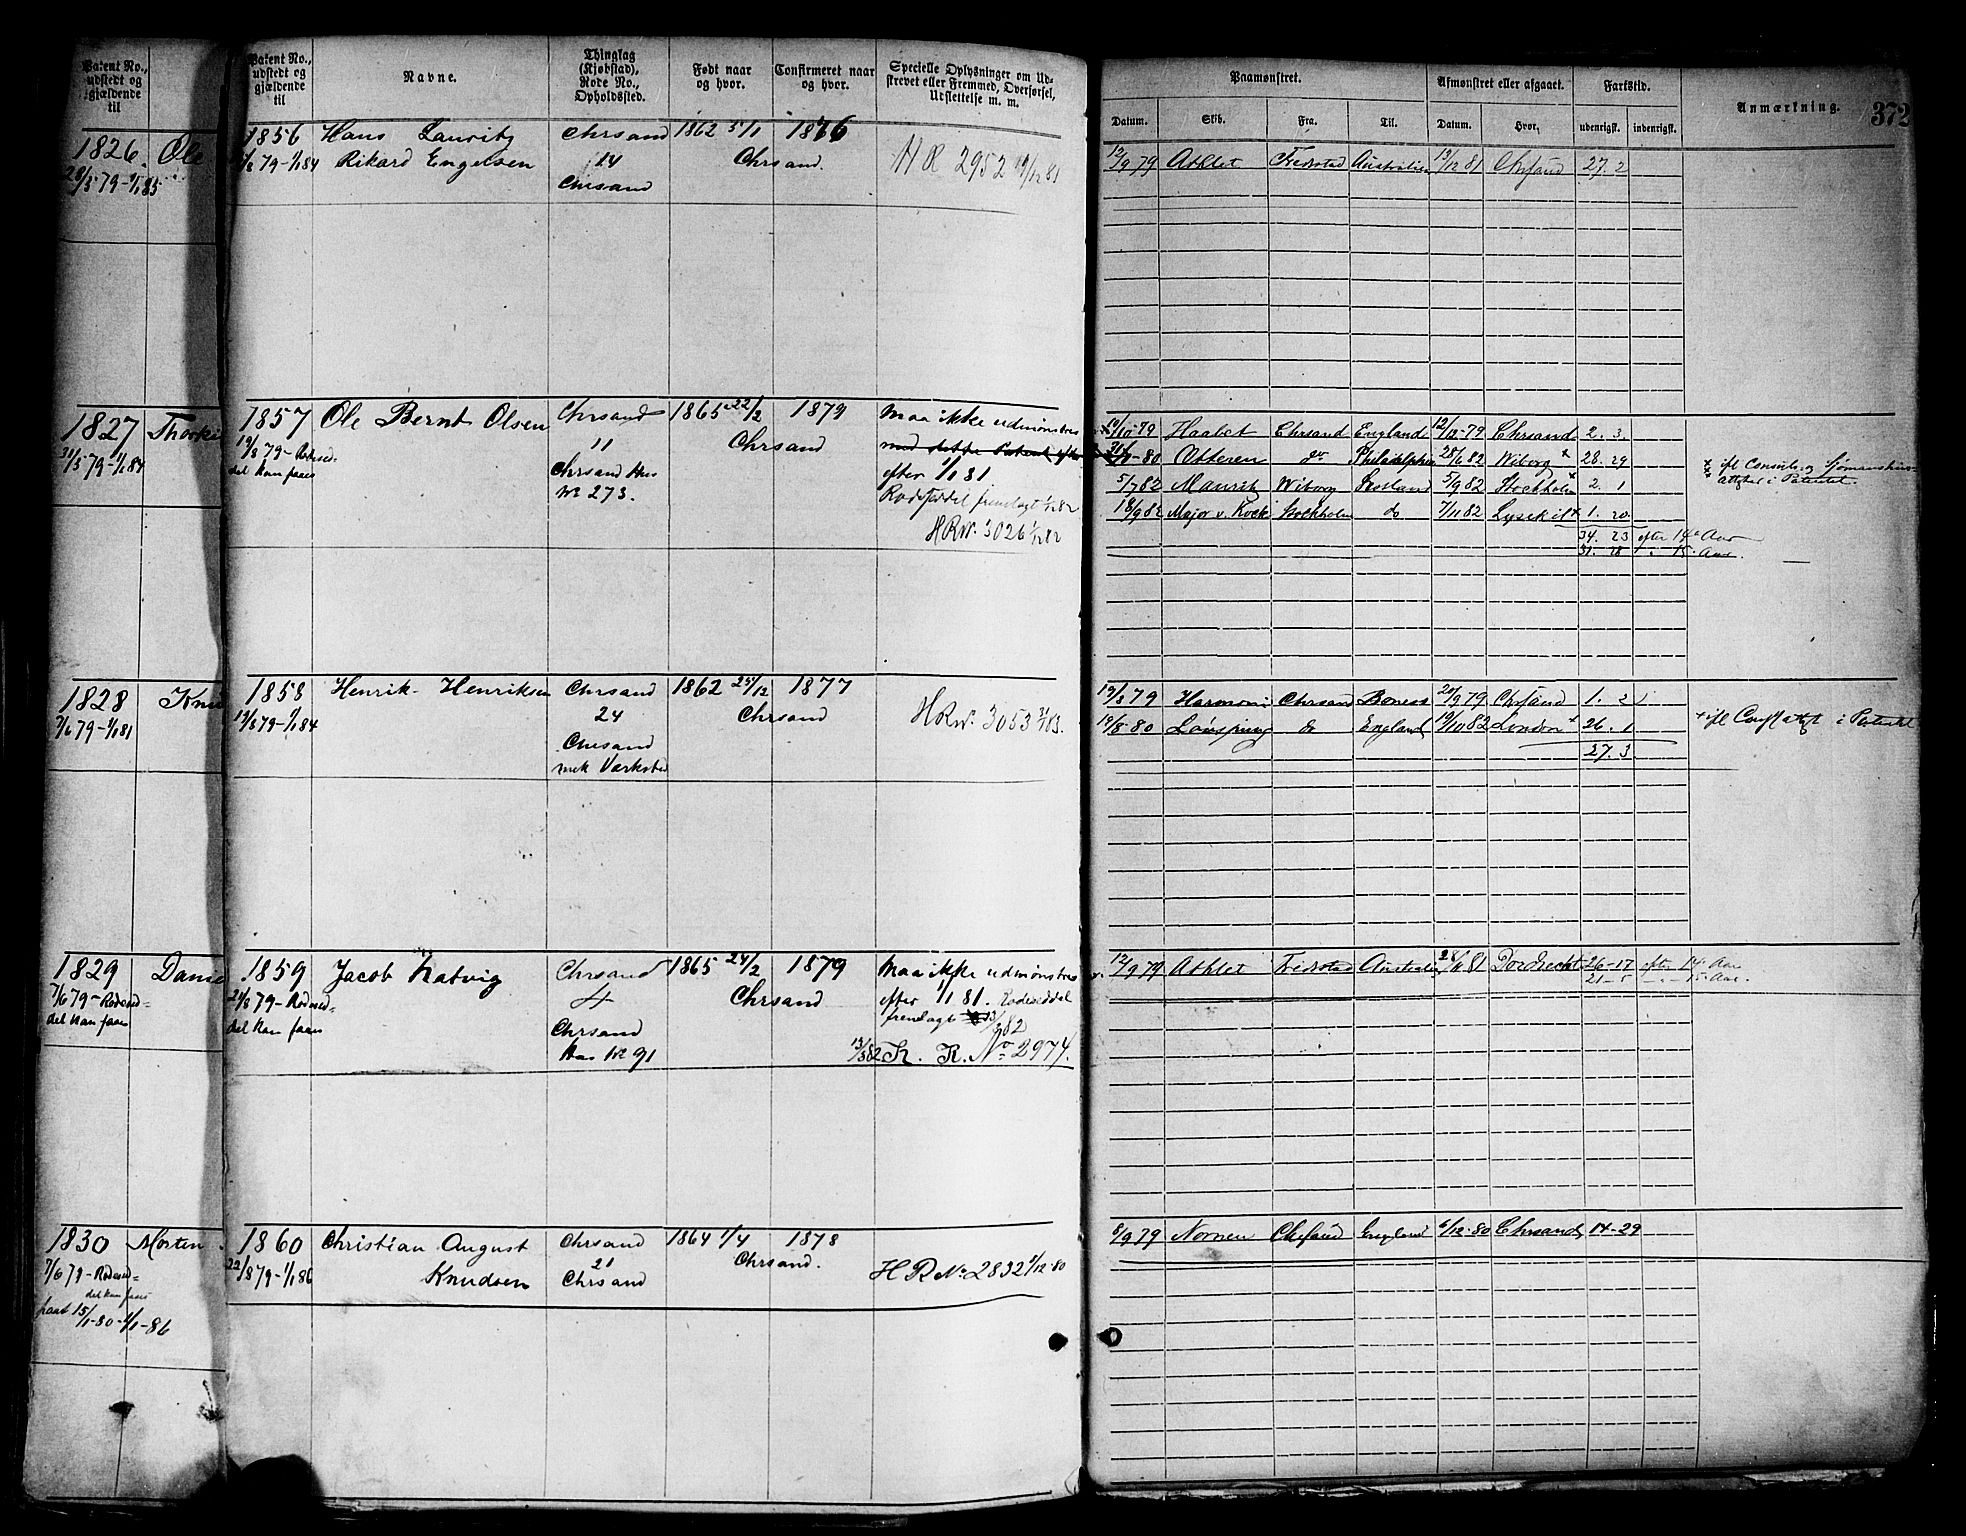 Patent No., udstedt og gjældende til
1826. Ole
28/5 79-1/1 85
1827 Thorki
31/5 79-1/1 84
1828 Knu
7/6 79-1/1 81
1829 Danie
7/6 79-Rodesed=
del kan faaes
1830 Morten
7/6 79-Rodesed=
del kan faaes
faaet 15/1-80-1/1-86
Patent No., udstedt og gjældende til
Navne.
Thinglag (Kjøbstad), Rode No., Opholdssted.
Født naar og hvor.
Confirmeret naar og hvor.
Specielle Oplysninger om Udskrevet eller Fremmed, Overførsel, Udslettelse m. m.
Paamønstret.
Datum. Skib. Fra. Til.
Afmønstret eller afgaaet.
Datum. Hvor.
Fartstid.
udenrigsk. indenrigsk.
Anmærkning.
372
1856 Hans Lauritz Chrsand 1862 5/1 1876
/8 79-1/1 84 Rikard Engelsen 14 Chrsand. HR 2952 19/12 81
Chrsand
12/9 79 Athlet Fredrstad Australien 19/12 81 Chrsand 27. 2
1857 Ole Bernt Olsen Chrsand 1865 22/2 1879 maa ikke udmønstres
19/8 79-Rodesed= 11 Chrsand med dette Patent efter
del kan faaes Chrsand Hus efter 1/1 81.
No 273. Rodeseddel fremlagt 1/12 82
HRNo. 3026 1/12 82
10/10-79 Haabet Chrsand England 12/12-79 Chrsand 2. 3.
-80 Otteren do Philadelphia 28/6 82 Wiborg x 28. 29
5/7 82 Mauritz Wiborg Skotland 5/9 82 Stockholm x 2. 1
18/9 82 Major v. Kock Stockholm do 7/11 82 Lysekil x 1. 20.
34. 23 efter 14de Aar
31. 28 " " 15. Aar.
x ifl Consuls og Sjømandshus=
attester i Patentet.
1858 Henrik Henriksen Chrsand 1862 25/12 1877
19/8 79-1/1 84 24 Chrsand HRNo. 3053 83.
Chrsand
mek Værksted
19/8 79 Harmoni Chrsand Boness 20/9 79 Chrsand 1. 2
19/8-80 do England 19/10 82 London + 26. 1
27. 3
+ ifl Consl attest i Patentet
1859 Jacob Natvig Chrsand 1865 24/2 1879 Maa ikke udmønstres
21/8 79-Rodesed= 4 Chrsand efter 1/1 81. Rodeseddel
del kan faaes Chrsand fremlagt 13/3 82
Hus No 91 13/3 82 H. R. No. 2974.
12/9 79 Athlet Fredrstad Australien 28/11 81 Dordrecht 26-17 efter 14 Aar
21-5 -"- 15 Aar.
1860 Christian August Chrsand 1864 1/4 1878
22/8 79-1/1 86 Knudsen 21 Chrsand.
Chrsand H R No. 2832 /12-80
8/9 79 Nornen Chrsand England 6/12-80 Chrsand 14-29